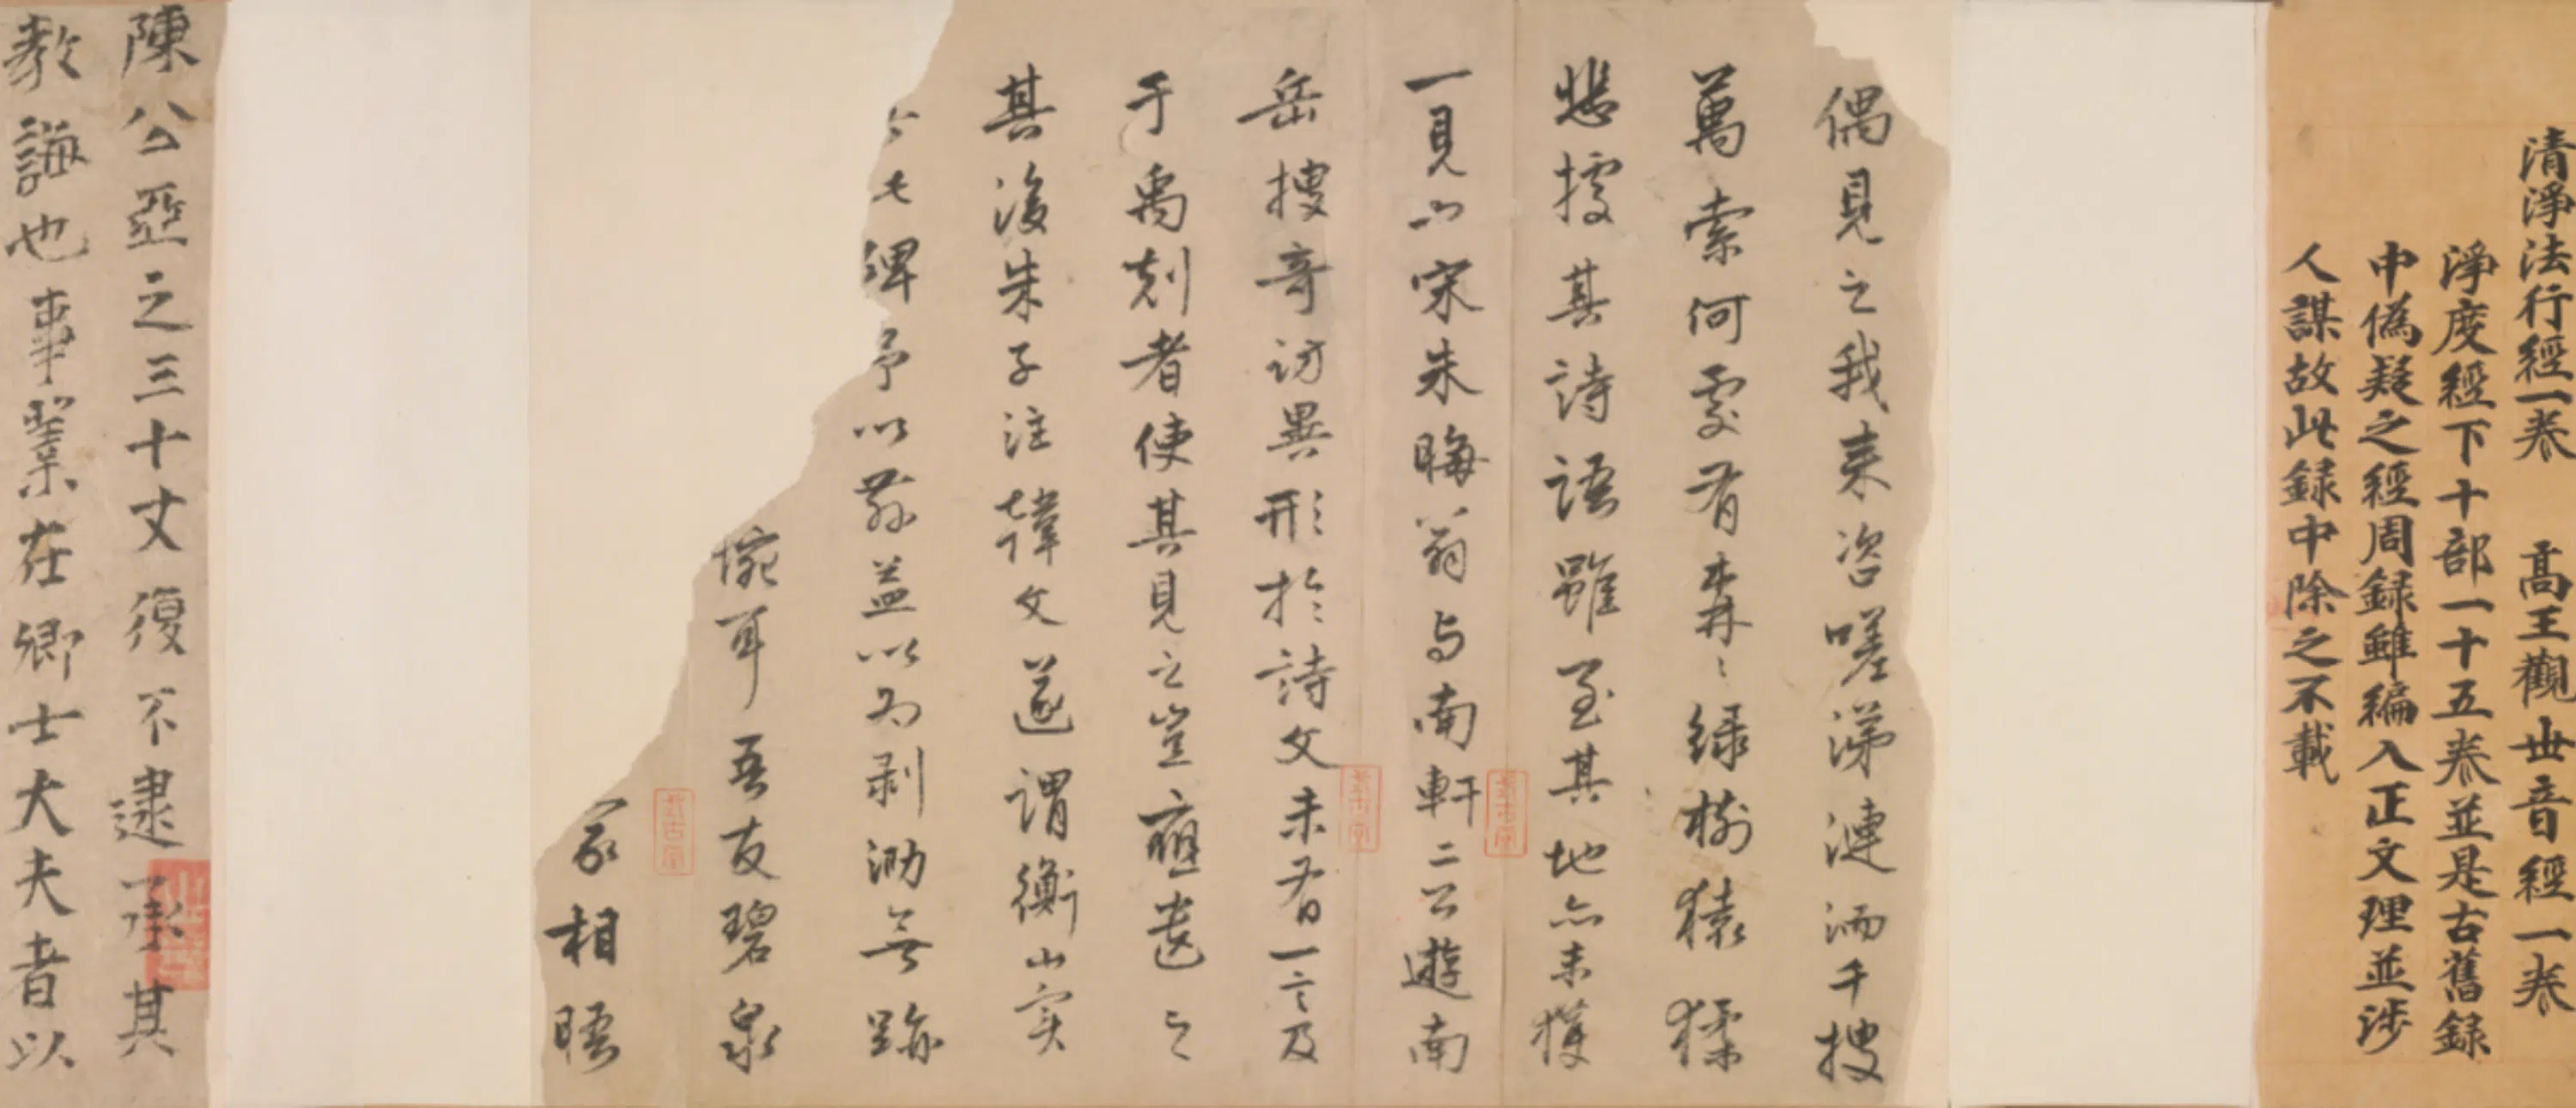 清淨法行經一卷 高王觀世音經一卷
淨度經下十部一十五卷並是古舊錄
中偽疑之經周錄雖編入正文理並涉
人謀故此錄中除之不載
偶見之我来咨嗟涕漣洏千搜
萬索何處有森〻緑樹猿猱
悲據其詩語雖至其地亦未獲
一見以宋朱晦翁与南軒二公遊南
岳搜奇訪異形於詩文未有一言及
于禹刻者使其見之豈應遺之
其後朱子注韓文遂謂衡山实
碑予以益以为剥泐無跡
惋耳吾友碧泉
相晤
陳公亞之三十丈復不逮承其
教誨也事業在卿士大夫者以